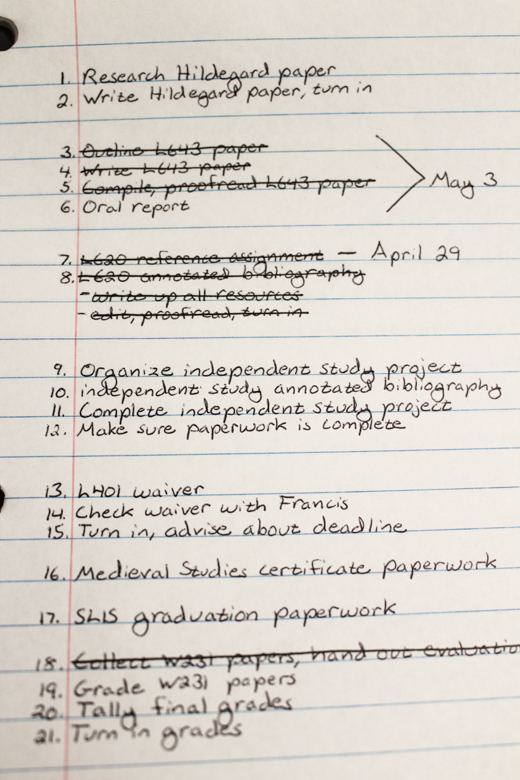 1. Research Hildegard paper
2. Write Hildegard paper, turn in
3. Outline L643 paper
4. Write L643 paper
5. Compile, proofread L643 paper
6. Oral report
May 3
7. L620 reference assignment — April 29
8. L620 annotated bibliography
- write up all resources
- edit, proofread, turn in
9. Organize independent study project
10. independent study annotated bibliography
11. Complete independent study project
12. Make sure paperwork is complete
13. L401 waiver
14. Check waiver with Francis
15. Turn in, advise about deadline
16. Medieval Studies certificate paperwork
17. SLIS graduation paperwork
18. Collect W231 papers, hand out evaluatio
19. Grade W231 papers
20. Tally final grades
21. Turn in grades